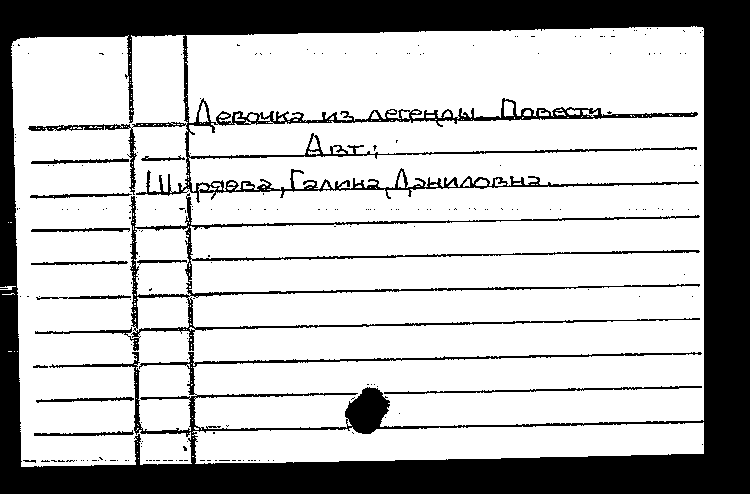 Девочка из легенды. Повести.
Авт.:
Ширяева, Галина Даниловна.